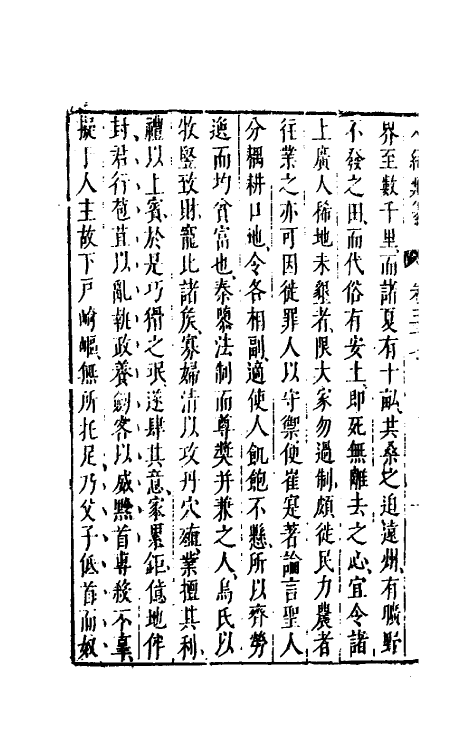 界至數千里而諸夏有十畝共桑之迫遠州有曠野
不發之田而代俗有安土即死無離去之心宜令諸
上廣人稀地未墾者限大家勿過制頗徙民力農者
往業之亦可因徙罪人以守禦使崔寔著論言聖人
分耦耕口地令各相副適使人飢飽不懸所以齊勞
逸而均貧富也秦隳法制而尊奬并兼之人烏氏以
牧豎致財寵比諸矦寡婦清以攻丹穴殖業擅其利
禮以上賓於是巧猾之氓遂肆其意家累鉅億地侔
封君行苞苴以亂執政養劒客以威黔首專殺不辜
擬于人主故下戸崎嶇無所托足乃父子低首而奴